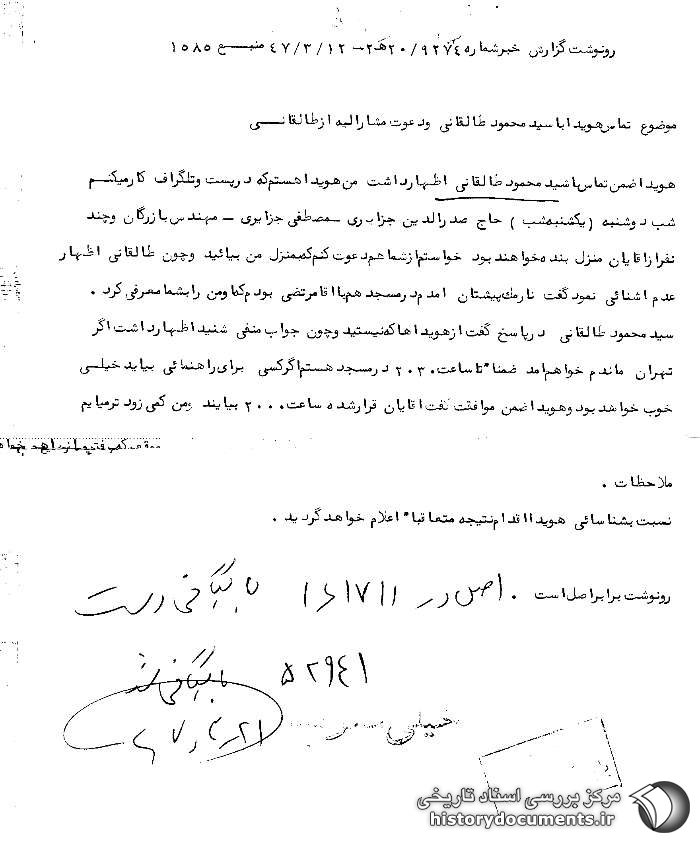 رونوشت گزارش خبر شماره ۹۲۷۴/۲۰هـ۲ – ۴۷/۳/۱۲ منبع ۱۵۸۵
موضوع تماس هویدا با سید محمود طالقانی ودعوت مشارالیه از طالقانی
هویدا ضمن تماس باسید محمود طالقانی اظهارداشت من هویدا هستم که درپست وتلگراف کارمیکنم
شب دوشنبه (یکشنبه شب) حاج صدرالدین جزایری – مصطفی جزایری – مهندس بازرگان وچند
نفرازاقایان منزل بنده خواهند بود خواستم ازشما هم دعوت کنم که بمنزل من بیائید وچون طالقانی اظهار
عدم اشنائی نمود گفت امدم درمسجد هم بااقا مرتضی بودم که اومن رابشما معرفی کرد .
سید محمود طالقانی درپاسخ گفت ازهویدا ها که نیستید وچون جواب منفی شنید اظهارداشت اگر
تهران ماندم خواهم امد ضمنا" تاساعت ۲۰۳۰ درمسجد هستم اگرکسی برای راهنمائی بیاید خیلی
خوب خواهد بود وهویدا ضمن موافقت گفت اقایان قرارشده ساعت ۲۰۰۰ بیایند ومن کمی زود ترمیایم
ملاحظات .
نسبت بشناسائی هویدا اقدام نتیجه متعاقبا" اعلام خواهد گردید .
رونوشت برابراصل است . اصل در بایگانی است
۵۲۹۴۱
بایگانی شد
مرکز بررسی اسناد تاریخی
historydocuments.ir